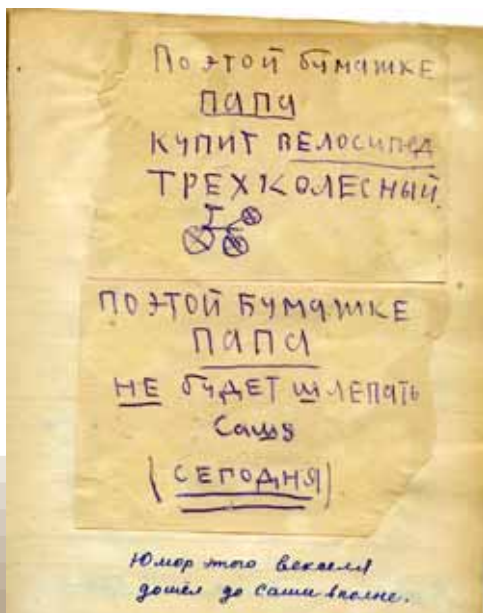 По этой бумажке
ПАПА
КУПИТ ВЕЛОСИПЕД
ТРЕХКОЛЕСНЫЙ
ПО ЭТОЙ БУМАЖКЕ
ПАПА
НЕ БУДЕТ ШЛЕПАТЬ
Сашу
(СЕГОДНЯ)
Юмор этого векселя
дошёл до Саши вполне.